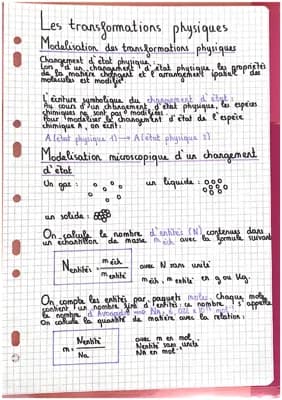 Les transformations physiques
Modélisation des transformations physiques
Changement d'état physique
Lors d'un changement d'état physique, les propriétés
de la matière changent et l'arrangement spatial des
molécules est modifié.
L'écriture symbolique du changement d'état :
Au cours d'un changement d'état physique, les espèces
chimiques ne sont pas modifiées.
Pour modéliser le changement d'état de l'espèce
chimique A, on écrit :
A (état physique 1) → A (état physique 2)
Modélisation microscopique d'un changement
d'état
Un gaz : un liquide :
un solide :
On calcule le nombre d'entités (N) contenues dans
un échantillon de masse m éch avec la formule suivante
N entités = m éch / m entité avec N sans unité
m éch, m entité en g ou kg.
On compte les entités par paquets moles. Chaque mole
contient un nombre d'entités. ce nombre s'appelle
le nombre d'Avogadro => Na,
On calcule la quantité de matière avec la relation :
m = N entité / Na avec m en mol
N entité sans unité
NA en mol